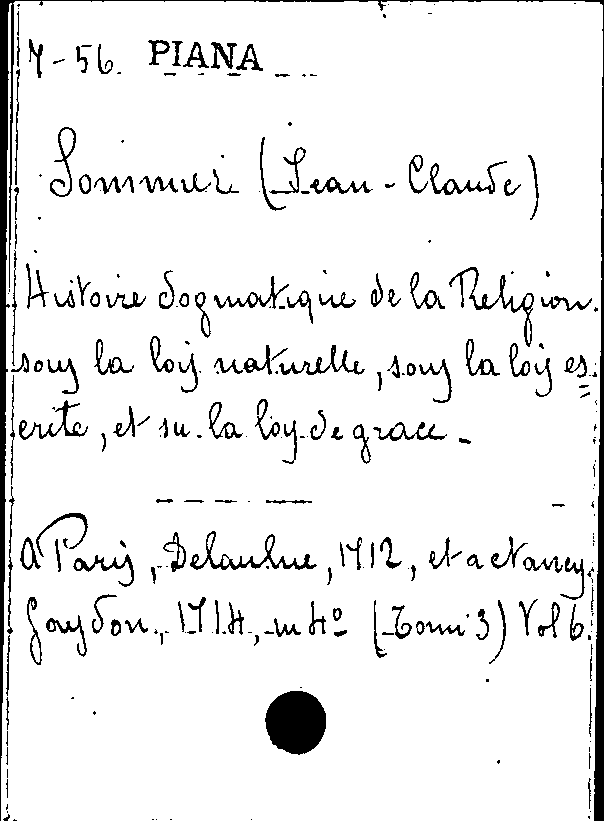 7-56. PIANA
Sommier (Jean-Claude)
Histoire dogmatique de la Religion.
souz la loij naturelle, souz la loij es=
crite, et su. la loy de grace -
A Parij, Delaulne, 1712, et a Nancy
Gaydon, 1714, in 4º (Tomi 3) Vol 6.